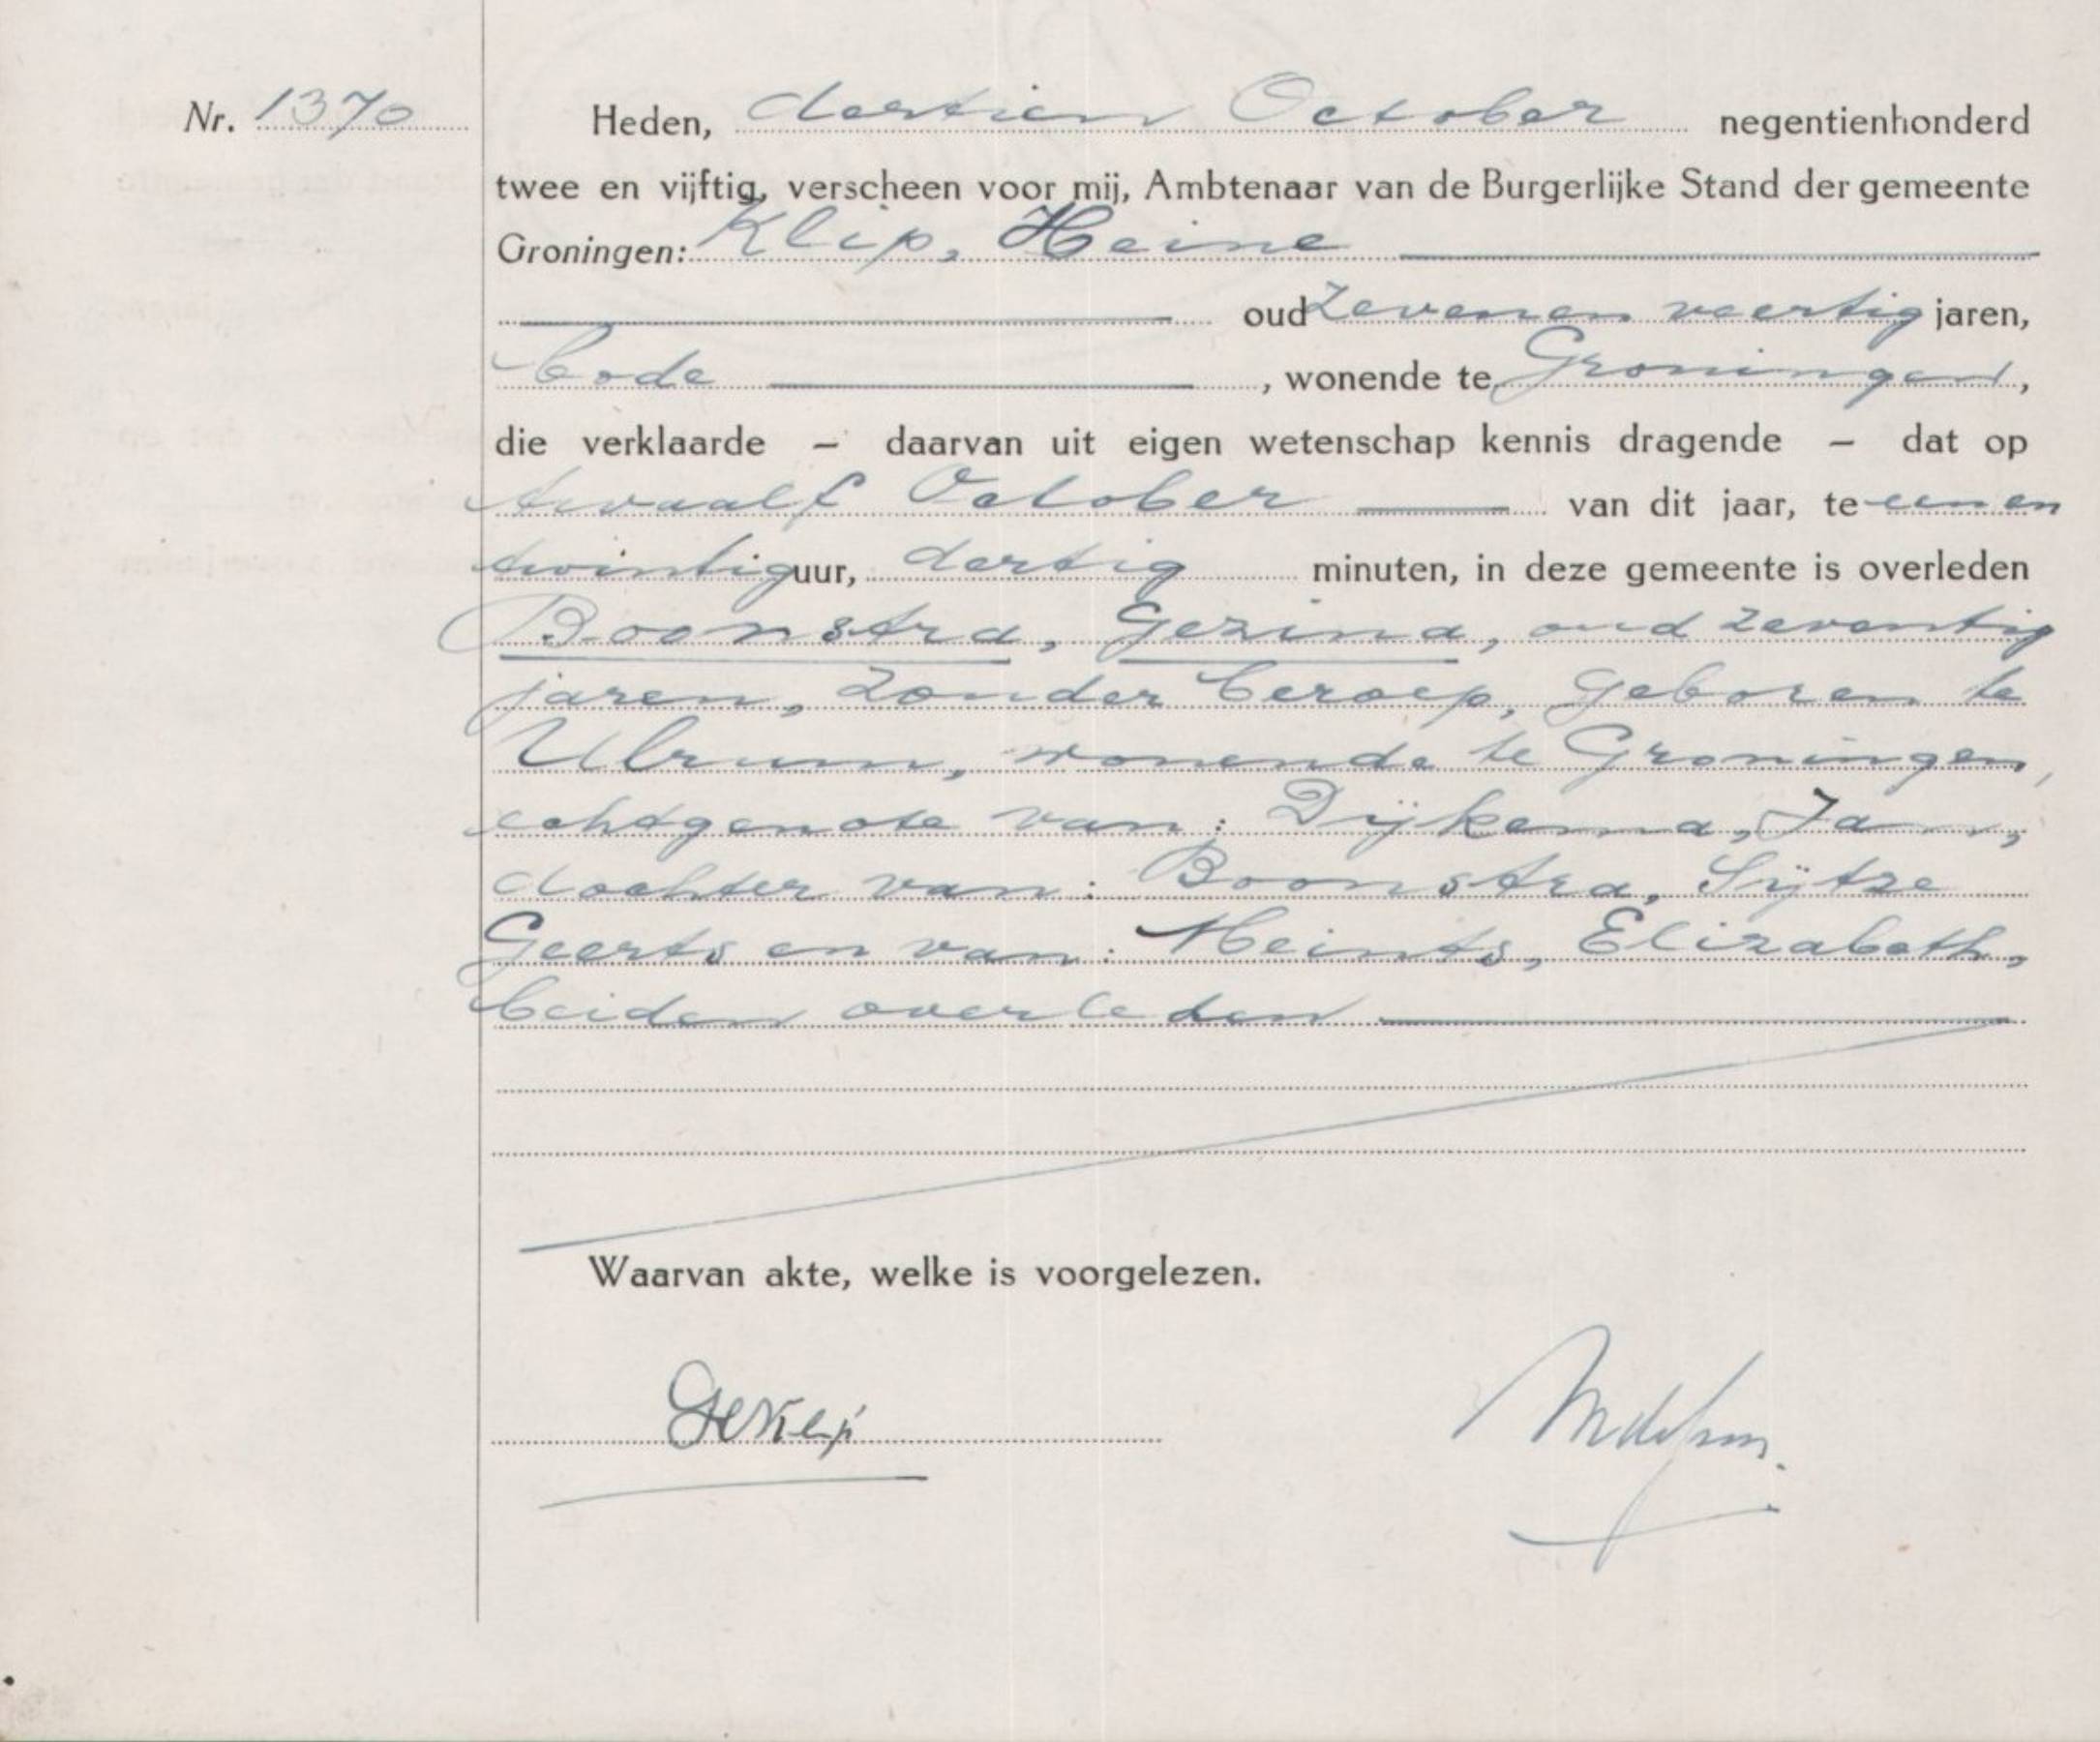 Nr. 1370
Heden, dertien October negentienhonderd
twee en vijftig, verscheen voor mij, Ambtenaar van de Burgerlijke Stand der gemeente
Groningen: Klip, Heine
oud zevenen veertig jaren,
bode, wonende te Groningen,
die verklaarde – daarvan uit eigen wetenschap kennis dragende – dat op
twaalf October van dit jaar, te een en
twintig uur, dertig minuten, in deze gemeente is overleden
Boonstra, Gezina, oud zeventig
jaren, zonder beroep, geboren te
Ulrum, wonende te Groningen,
echtgenote van: Dijkema, Jan,
dochter van: Boonstra, Sijtze
Geerts en van: Heints, Elizabeth,
beiden overleden
Waarvan akte, welke is voorgelezen.
HKlip